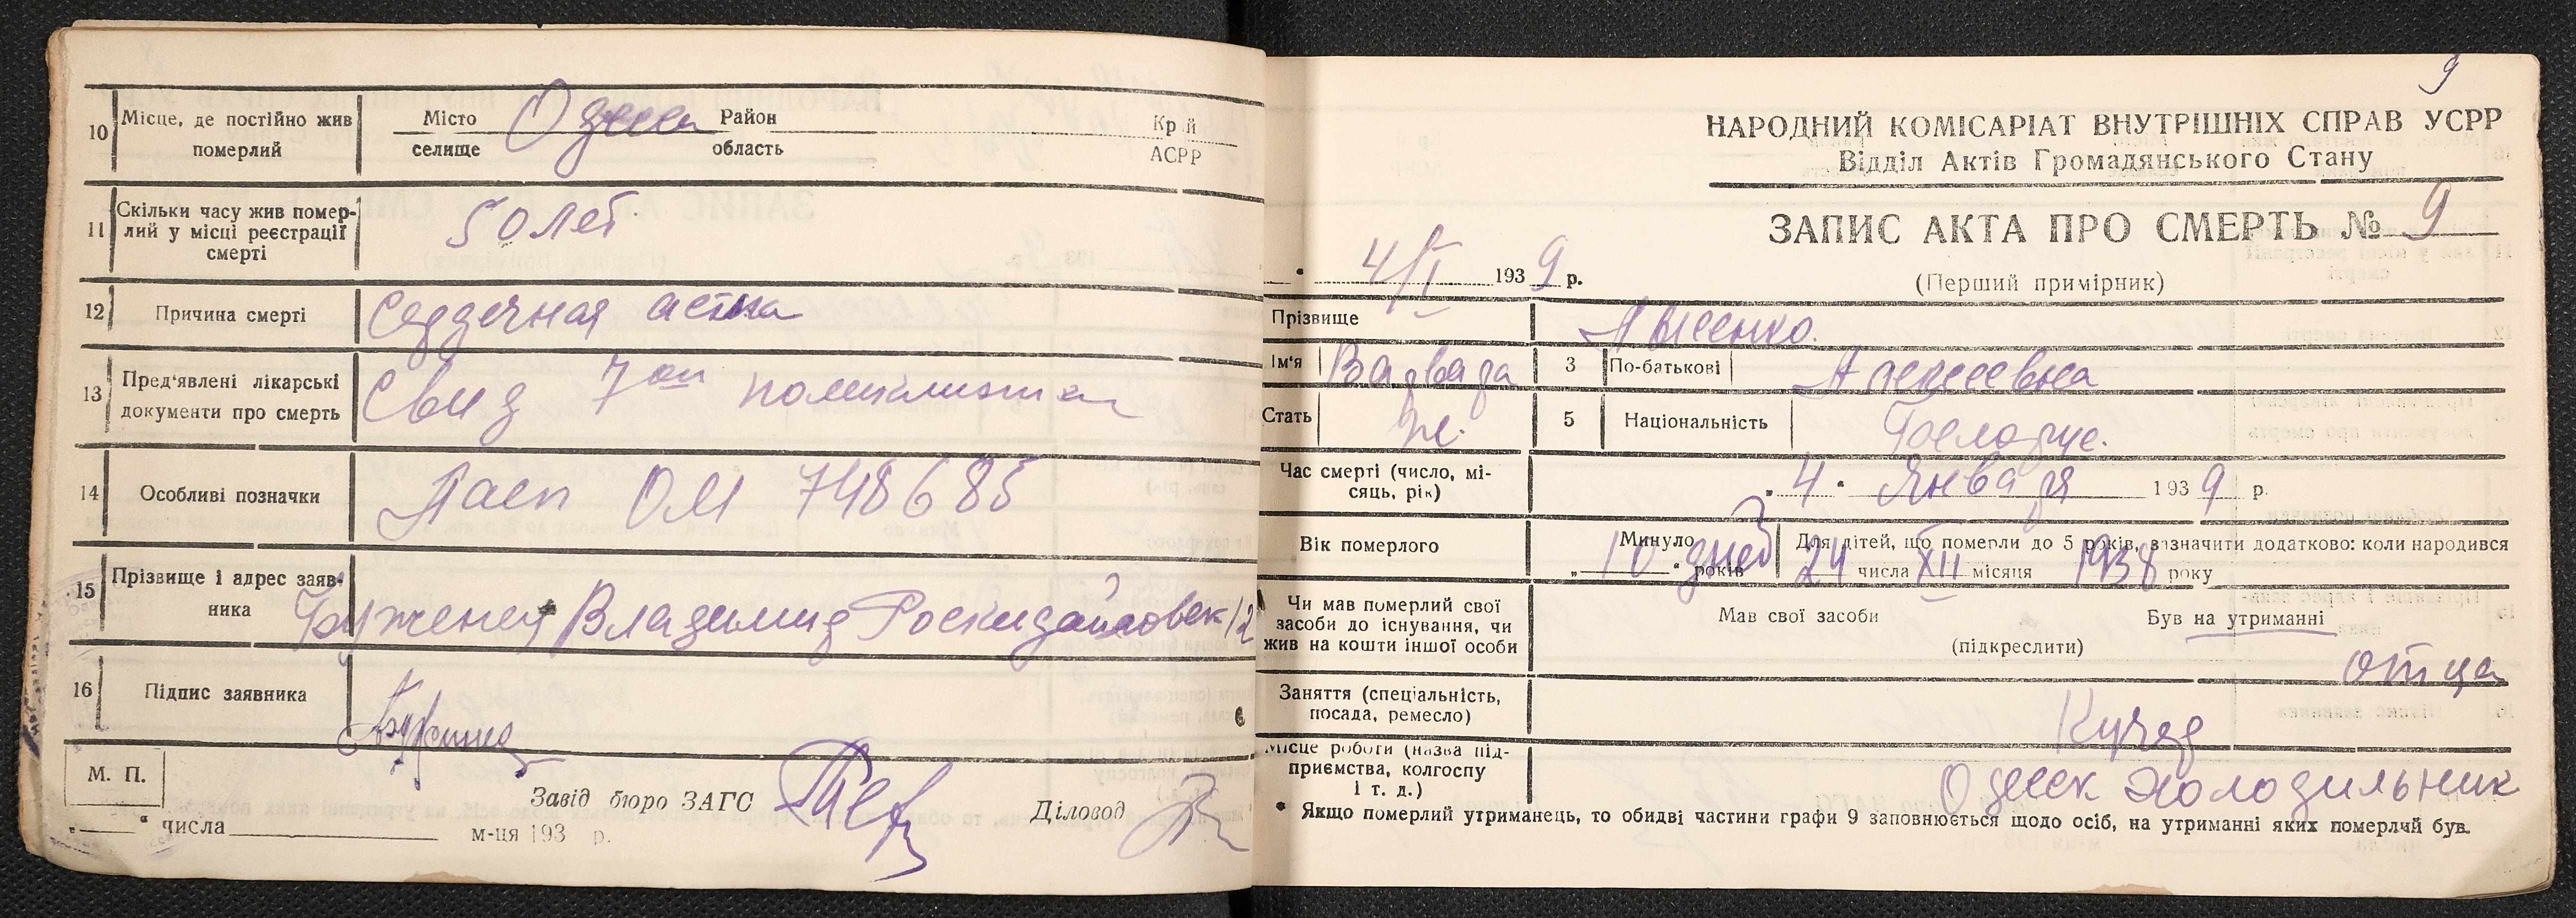 10
Місце, де постійно жив
померлий
Місто
селище
Одесса
Район
область
Край
АСРР
11
Скільки часу жив помер-
лий у місці реєстрації
смерті
50 лет
12
Причина смерті
Сердечная астма
13
Пред'явлені лікарські
документи про смерть
Свид 7ой поликлиники
14
Особливі позначки
Пасп ОМ 748685
15
Прізвище і адрес заяв-
ника
Владимир
12
16
Підпис заявника
М. П.
Завід бюро ЗАГС
Діловод
„ “ числа м-ця 193 р.
9
НАРОДНИЙ КОМІСАРІАТ ВНУТРІШНІХ СПРАВ УСРР
Відділ Актів Громадянського Стану
ЗАПИС АКТА ПРО СМЕРТЬ № 9
(Перший примірник)
4/I 1939 р.
Прізвище
Авсеенко.
Ім'я
Варвара
3
По-батькові
Алексеевна
Стать
ж.
5
Національність
Белорус.
Час смерті (число, мі-
сяць, рік)
„4“ Января 1939 р.
Вік померлого
Минуло
„10“ років дней
Для дітей, що померли до 5 років, зазначити додатково: коли народився
24 числа XII місяця 1938 року
Чи мав померлий свої
засоби до існування, чи
жив на кошти іншої особи
Мав свої засоби
Був на утриманні
(підкреслити)
отца
Заняття (спеціальність,
посада, ремесло)
Кучер
Місце роботи (назва під-
приємства, колгоспу
і т. д.)
Одесск Холодильник
* Якщо померлий утриманець, то обидві частини графи 9 заповнюється щодо осіб, на утриманні яких померлий був.